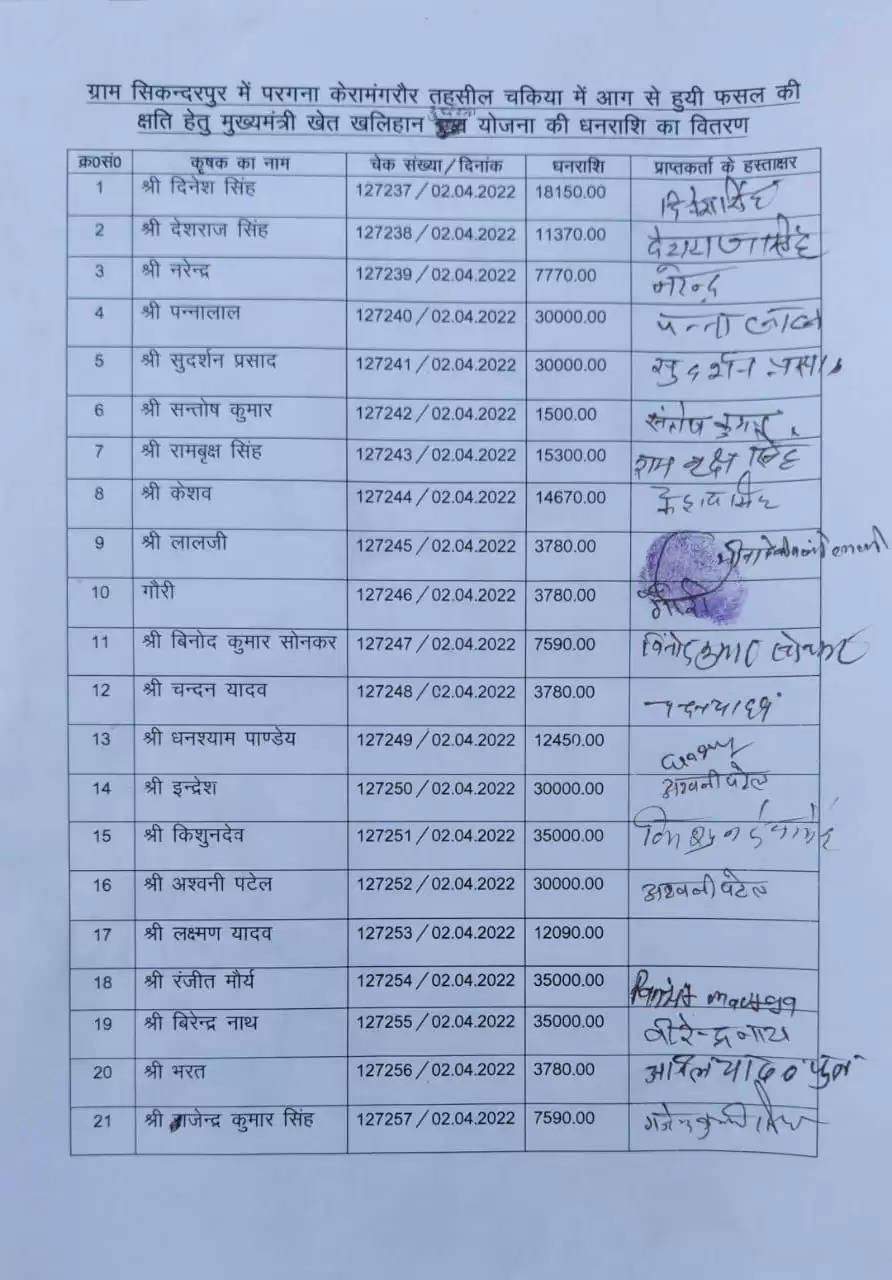 ग्राम सिकन्दरपुर में परगना केरामंगरौर तहसील चकिया में आग से हुयी फसल की
क्षति हेतु मुख्यमंत्री खेत खलिहान योजना की धनराशि का वितरण
क्र0सं0 कृषक का नाम चेक संख्या/दिनांक धनराशि प्राप्तकर्ता के हस्ताक्षर
1 श्री दिनेश सिंह 127237/02.04.2022 18150.00 दिनेश सिंह
2 श्री देशराज सिंह 127238/02.04.2022 11370.00 देशराज सिंह
3 श्री नरेन्द्र 127239/02.04.2022 7770.00 नरेन्द्र
4 श्री पन्नालाल 127240/02.04.2022 30000.00 पन्नालाल
5 श्री सुदर्शन प्रसाद 127241/02.04.2022 30000.00 सुदर्शन प्रसाद
6 श्री सन्तोष कुमार 127242/02.04.2022 1500.00 संतोष कुमार
7 श्री रामबृक्ष सिंह 127243/02.04.2022 15300.00 राम वृक्ष सिंह
8 श्री केशव 127244/02.04.2022 14670.00 केशव सिंह
9 श्री लालजी 127245/02.04.2022 3780.00
10 गौरी 127246/02.04.2022 3780.00 गौरी
11 श्री बिनोद कुमार सोनकर 127247/02.04.2022 7590.00 विनोद कुमार सोनकर
12 श्री चन्दन यादव 127248/02.04.2022 3780.00 चन्दन यादव
13 श्री धनश्याम पाण्डेय 127249/02.04.2022 12450.00
14 श्री इन्द्रेश 127250/02.04.2022 30000.00 अश्वनी पटेल
15 श्री किशुनदेव 127251/02.04.2022 35000.00
16 श्री अश्वनी पटेल 127252/02.04.2022 30000.00 अश्वनी पटेल
17 श्री लक्ष्मण यादव 127253/02.04.2022 12090.00
18 श्री रंजीत मौर्य 127254/02.04.2022 35000.00
19 श्री बिरेन्द्र नाथ 127255/02.04.2022 35000.00 वीरेन्द्र नाथ
20 श्री भरत 127256/02.04.2022 3780.00
21 श्री राजेन्द्र कुमार सिंह 127257/02.04.2022 7590.00